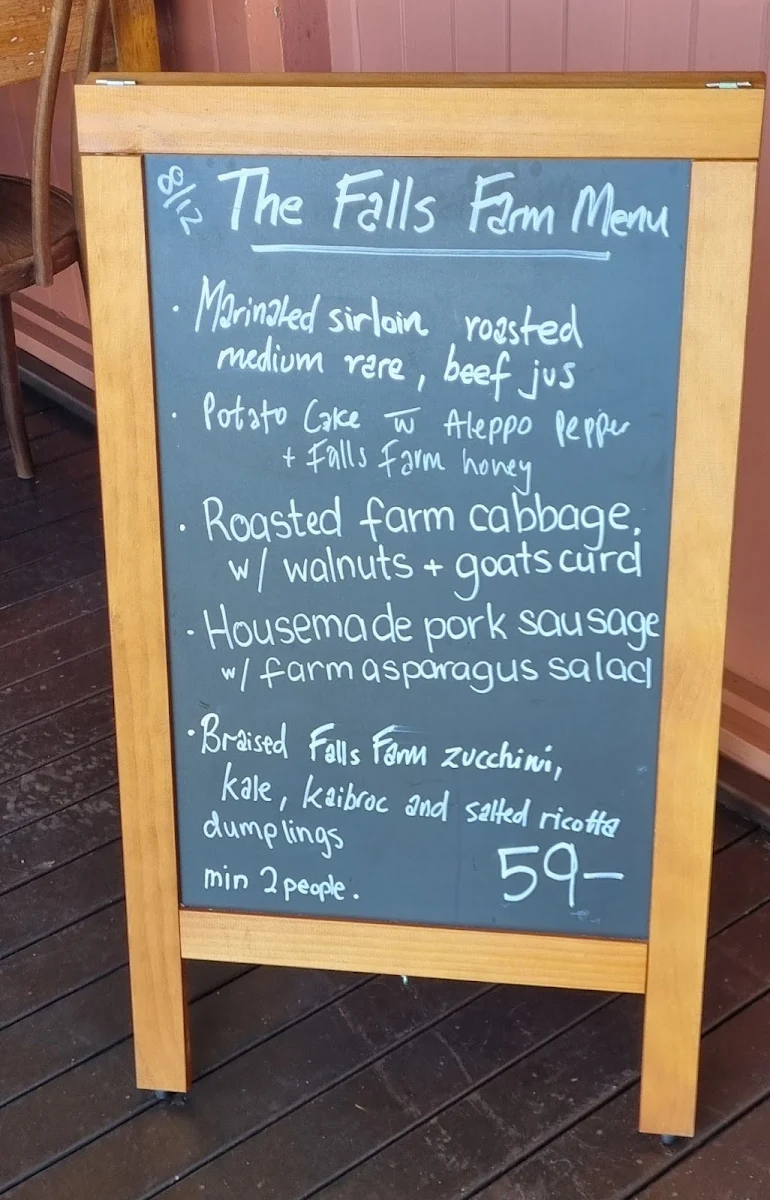 8/12
The Falls Farm Menu
· Marinated sirloin roasted
medium rare, beef jus
· Potato Cake w̅ Aleppo Pepper
+ Falls Farm honey
· Roasted farm cabbage,
w/ walnuts + goats curd
· Housemade pork sausage
w/ farm asparagus salad
· Braised Falls Farm zucchini,
kale, kaibroc and salted ricotta
dumplings
min 2 people. 59-